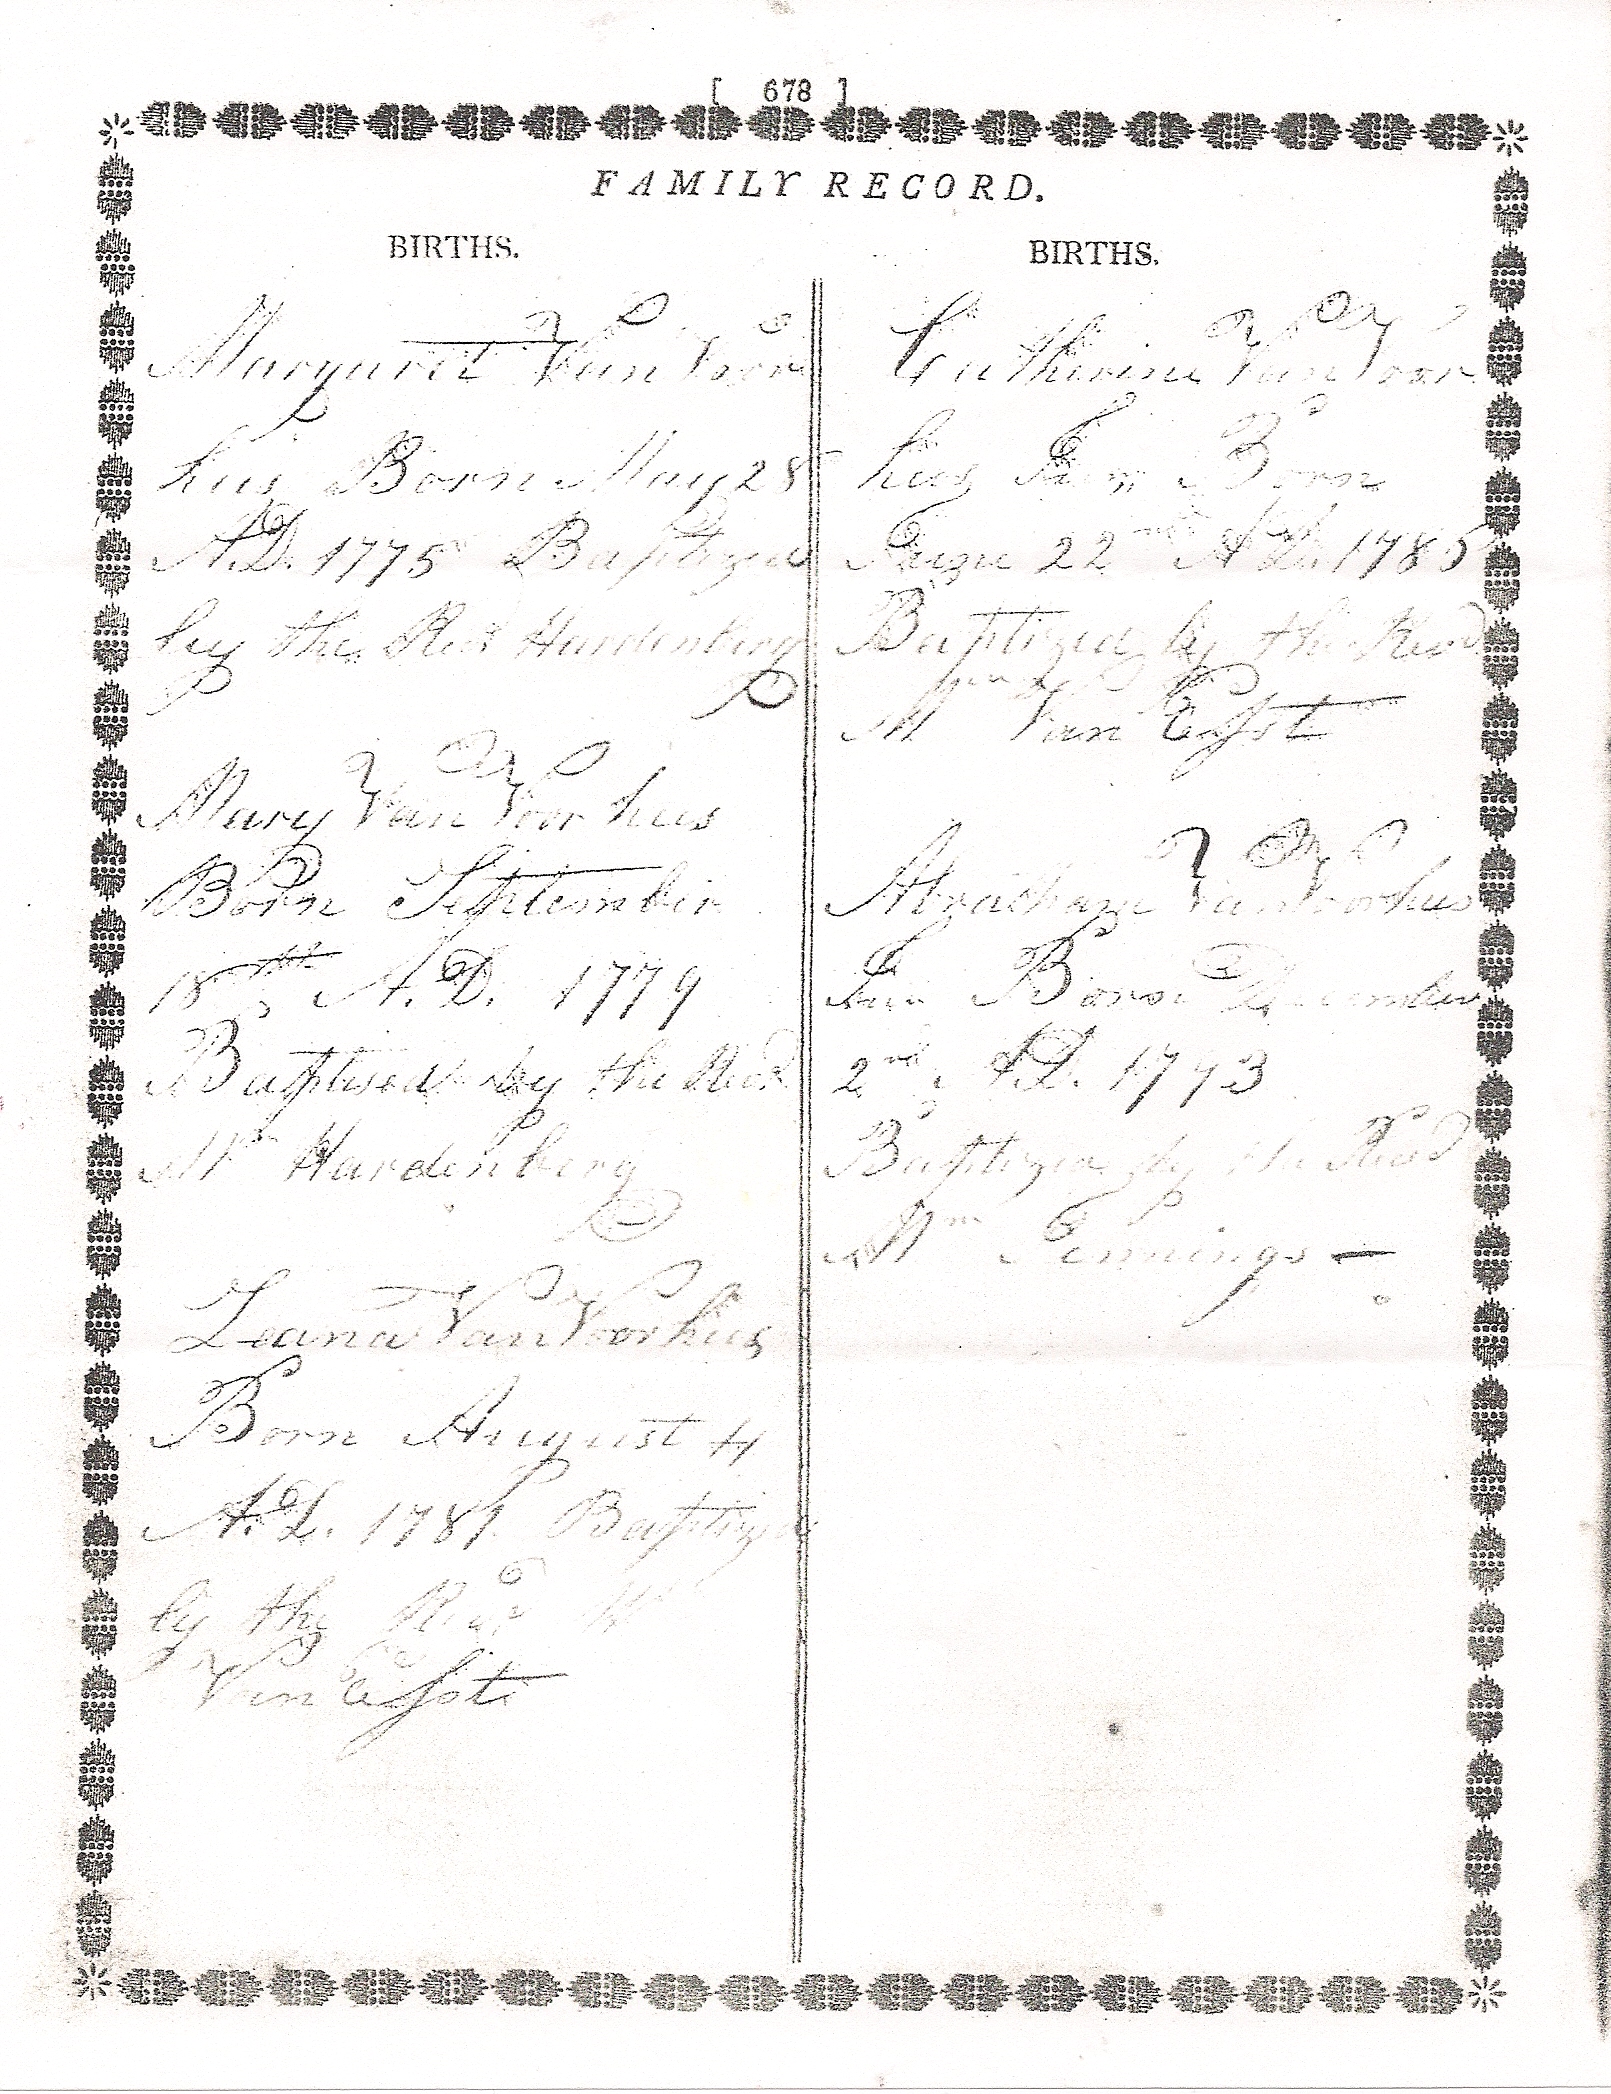 [ 678 ]
FAMILY RECORD.
BIRTHS.
Margaret Van Voor
hies Born May 28
A.D. 1775 Baptized
by the Revd Hardenberg
Mary Van Voorhies
Born September
18th, A.D. 1779
Baptised by the Revd
Mr Hardenberg
Leana Van Voorhies
Born August 4
A.D. 1781 Baptized
by the Revd Mr
Van Esst
BIRTHS.
Catherine Van Voor
hies Jun Born
June 22nd A.D. 1785
Baptized by the Revd
Mr Van Esst
Abraham Van Voorhies
Jun Born December
2nd, A.D. 1793
Baptized by the Revd
Mr Jennings —